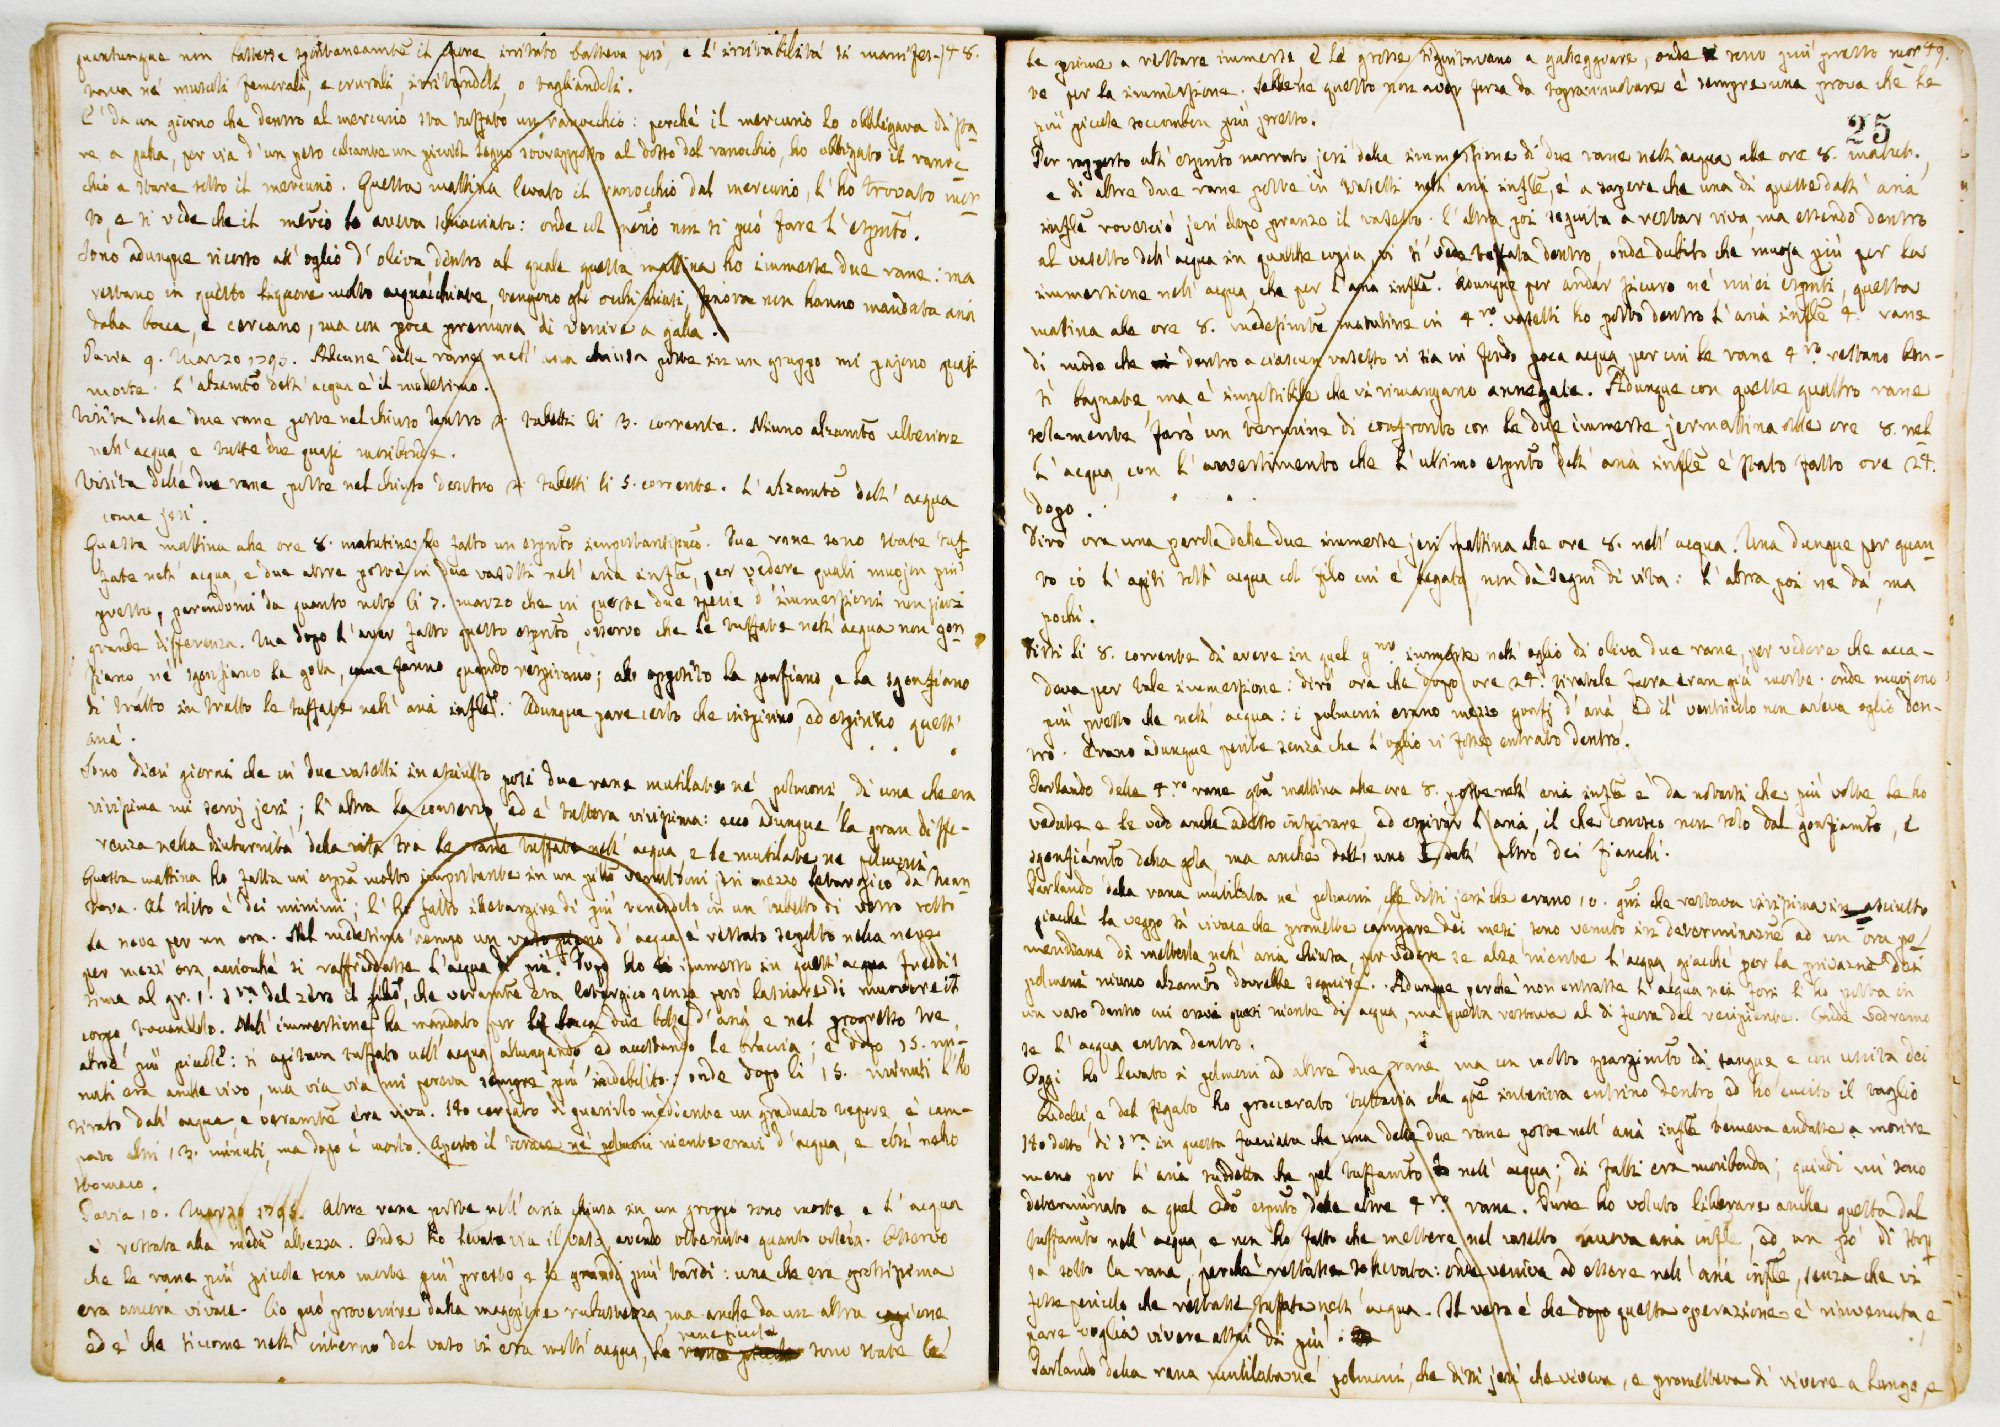 quantunque non battesse spontaneamte il cuore irritato batteva però, e l'irritabilità si manifes- 48.
tava né muscoli femorali, e crurali, irritandoli, o tagliandoli.
E' da un giorno che dentro al mercurio sta tuffato un ranocchio: perché il mercurio lo obbligava di sta-
re a galla, per via d'un peso calcante un piccol legno sovrapposto al dosso del ranocchio, ho obbligato il ranoc-
chio a stare sotto il mercurio. Questa mattina levato il ranocchio dal mercurio, l'ho trovato mor-
to, e si vede che il mercio lo aveva schiacciato: onde col merio non si può fare l'esprito.
Sono adunque ricorso all'oglio d'oliva dentro al quale questa mattina ho immerse due rane: ma
restano in questo liquore molto acquacchiate, tengono gli occhi chiusi, finora non hanno mandata aria
dalla bocca, e cercano, ma con poca premura di venire a galla.
Pavia 9. Marzo 1795. Alcune delle rane nell'aria chiusa poste in un gruppo mi pajono quasi
morte. L'alzamto dell'acqua è il medesimo.
Visita delle due rane poste nel chiuso dentro ai tubetti li 3. corrente. Niuno alzamto ulteriore
nell'acqua, e tutte due quasi moribonde.
Visita delle due rane poste nel chiuso dentro ai tubetti li 5. corrente. L'alzamto dell'acqua
come jeri.
Questa mattina alle ore 8. matutine ho fatto un esprito importantissimo. Due rane sono state tuf-
fate nell'acqua, e due altre poste in due vasetti nell'aria infle, per vedere quali muojon più
presto, parendomi da quanto noto li 7. marzo che in queste due specie d'immersioni non siavi
grande differenza. Ma dopo l'aver fatto questo esprito, osservo che le tuffate nell'acqua non gon-
fiano né sgonfiano la gola, come fanno quando respirano; all'opposito la gonfiano, e la sgonfiano
di tratto in tratto le tuffate nell'aria infle. Adunque pare certo che inspirino, ed espirino quest'
aria.
Sono dieci giorni che in due vasetti in asciutto posi due rane mutilate né polmoni di una che era
vivissima mi servij jeri; l'altra la conservo, ed è tuttora vivissima: ecco adunque la gran diffe-
renza nella diuturnità della vita tra le rane tuffate nell'acqua, e le mutilate ne polmoni.
Questa mattina ho fatta un'espza molto importante in un venutomi jeri mezzo letargico da Man-
tova. Al solito è dei minimi; l'ho fatto iletargire di più tenendolo in un tubetto di vetro sotto
la neve per un ora. Nel medesimo tempo un vaso pieno d'acqua è restato sepolto nella neve
per mezz'ora, acciocché si raffreddasse l'acqua di più. Dopo ho immerso in quell'acqua freddis-
sima al gr. 1. s.ra del zero il, che veramte era letargico senza però lasciare di muovere il
corpo, toccandolo. Nell'immersione ha mandato per la bocca due bolle d'aria, e nel progresso tre,
altre più piccole: si agitava tuffato nell'acqua allungando ed accostando le braccia; e dopo 15. mi-
nuti era anche vivo, ma via via mi pareva sempre più indebolito; onde dopo li 15. minuti l'ho
tirato dall'acqua e veramte era vivo. Ho cercato di guarirlo mediante un graduato tepore è cam-
pato altri 13. minuti, ma dopo è morto. Aperto il torace né polmoni niente eravi d'acqua, e così nello
stomaco.
Pavia 10. Marzo 1795. Altre rane poste nell'aria chiusa in un gruppo sono morte e l'acqua
è restata alla medma altezza. Onde ho levata via il vaso avendo ottenuto quanto voleva. Osservo
che le rane più piccole sono morte più presto e le grandi più tardi: una che era grossissima
era ancora vivace. Ciò può provenire dalla maggiore robustezza, ma anche da un altra cagione
ed è che siccome nell'interno del vaso vi era molt'acqua, le rane piccole sono state le
le prime a restare immerse e le grosse seguitavano a galleggiare, onde sono più presto mor- 49.
te per la immersione. Sebbene questo non aver forza da soprannuotare è sempre una prova che le
più piccole soccombon più presto.
25
Per rapporto all'esprito narrato jeri della immersione di due rane nell'acqua alle ore 8. matut.,
e di altre due rane poste in vasetti nell'aria infle, è a sapere che una di quelle dall'aria
infle rovesciò jeri dopo pranzo il vasetto. L'altra poi seguita a restar viva, ma essendo dentro
al vasetto dell'acqua in qualche copia, vi si vede tuffata dentro, onde dubito che muoja più per la
immersione nell'acqua, che per l'aria infle. Adunque per andar sicuro né miei espriti, questa
matina alle ore 8. medesimte matutine in 4.ro vasetti ho posto dentro l'aria infle 4. rane
di modo che dentro a ciascun vasetto vi sia in fondo poca acqua per cui le rane 4.ro restano ben-
sì bagnate, ma è impossibile che vi rimangano annegate. Adunque con quelle quattro rane
solamente farò un termine di confronto con le due immerse jermattina alle ore 8. nel
l'acqua, con l'avvertimento che l'ultimo esprito dell'aria infle è stato fatto ore 24.
dopo.
Dirò ora una parola delle due immerse jeri mattina alle ore 8. nell'acqua. Una dunque per quan-
to io l'agiti sott'acqua col filo cui è legata, non dà segni di vita: l'altra poi ne dà, ma
pochi.
Dissi li 8. corrente di avere in quel gno immerse nell'oglio di oliva due rane, per vedere che acca-
deva per tale immersione: dirò ora che dopo ore 24. tiratele fuora eran già morte. onde muojono
più presto che nell'acqua: i polmoni erano mezzo gonfj d'aria, ed il ventricolo non aveva oglio den-
tro. Erano adunque perite senza che l'oglio vi fosse entrato dentro.
Parlando delle 4.ro rane qta mattina alle ore 8. poste nell'aria infle è da notarsi che più volte le ho
vedute e le vedo anche adesso inspirare, ed espirar l'aria, il che conosco non solo dal gonfiamto, e
sgonfiamto della gola, ma anche dall'uno e dall'altro dei fianchi.
Parlando della rana mutilata né polmoni, che dissi jeri che erano 10. gni che restava vivissima in asciutto
giacché la veggo sì vivace che promette campare dei mesi, sono venuto in determinazne ad un'ora po-
meridiana di metterla nell'aria chiusa, per vedere se alza niente l'acqua, giacché per la privazne dei
polmoni niuno alzamto dovrebbe seguire. Adunque perché non entrasse l'acqua nei fori li ho posta in
un vaso dentro cui eravi quasi niente di acqua, ma questa restava al di fuora del recipiente. Onde vedremo
se l'acqua entra dentro.
Oggi ho levato i polmoni ad altre due rane ma con molto spargimto di sangue, e con uscita dei
budelli, e del fegato ho proccurato tuttavia che qte interiora entrino dentro ed ho cucito il taglio
Ho detto di s.ra in questa facciata che una delle due rane poste nell'aria infle temeva andasse a morire
meno per l'aria suddetta che pel tuffamto nell'acqua; di fatti era moribonda; quindi mi sono
determinato a quel 2do esprito delle altre 4.ro rane. Pure ho voluto liberare anche questa dal
tuffamto nell'acqua, e non ho fatto che mettere nel vasetto nuova aria infle, ed un pò di stop-
pa sotto la rana, perché restasse sollevata: onde veniva ad essere nell'aria infle, senza che vi
fosse pericolo che restasse tuffata nell'acqua. Il vero è che dopo questa operazione è rinvenuta, e
pare voglia vivere assai di più.
Parlando della rana mutilata né polmoni, che dissi jeri che viveva, e prometteva di vivere a lungo, e